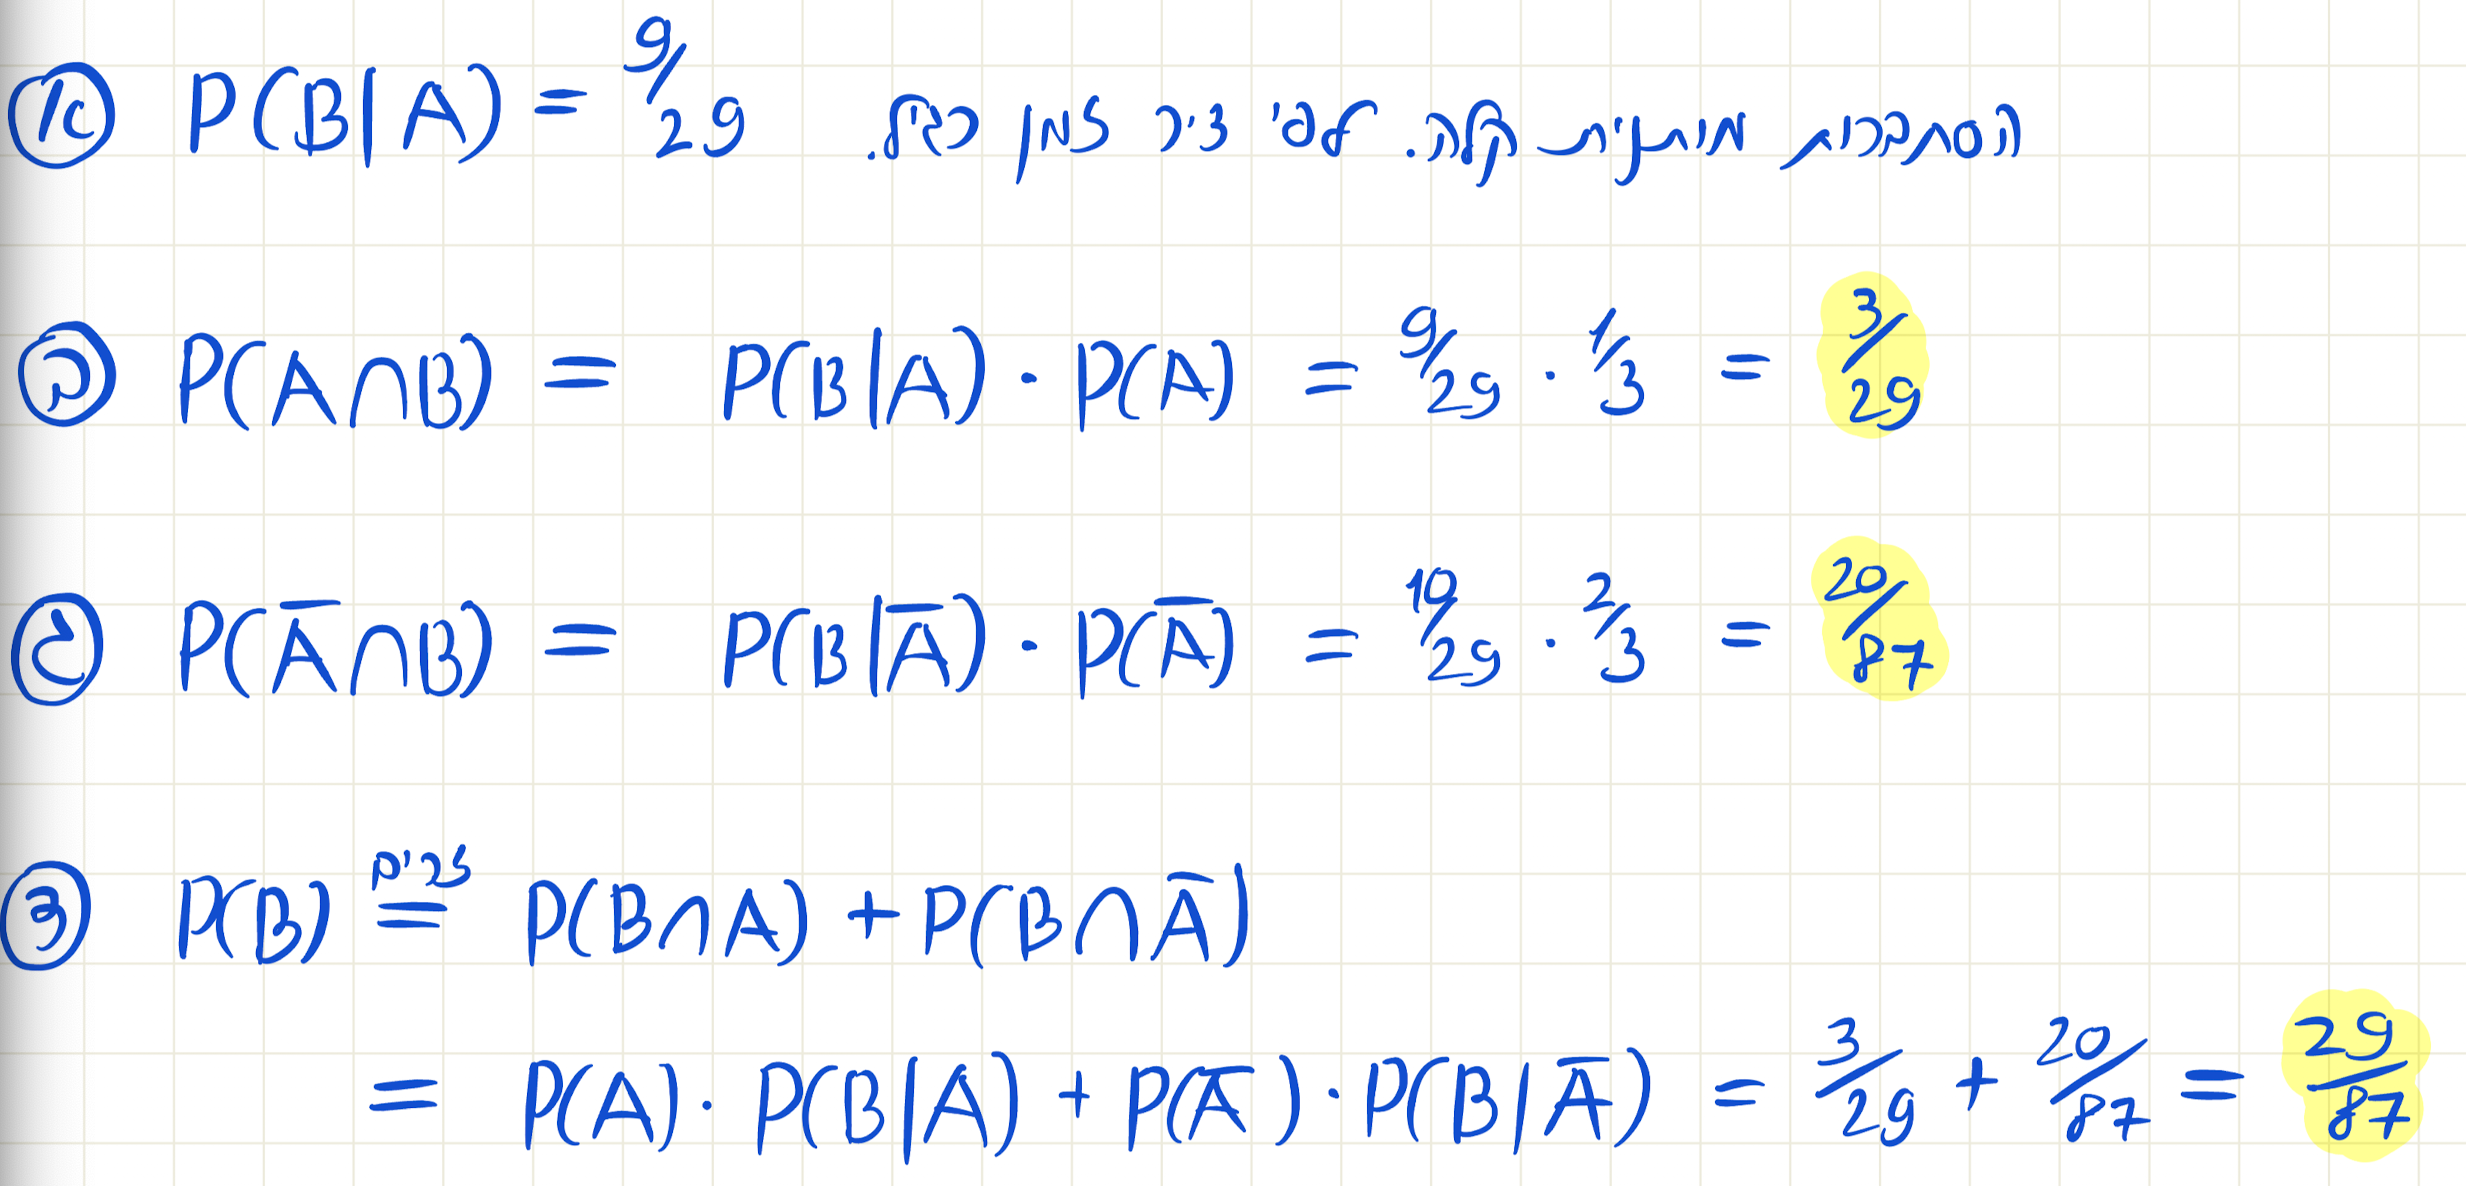 א P(B|A) = 9/29 הסתברות מותנית קלה. לפי ציר זמן רגיל.
ב P(A∩B) = P(B|A) · P(A) = 9/29 · 1/3 = 3/29
ג P(Ā∩B) = P(B|Ā) · P(Ā) = 10/29 · 2/3 = 20/87
3 P(B) = P(B∩A) + P(B∩Ā)
= P(A) · P(B|A) + P(Ā) · P(B|Ā) = 3/29 + 20/87 = 29/87